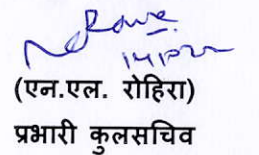 (एन.एल. रोहिरा)
प्रभारी कुलसचिव